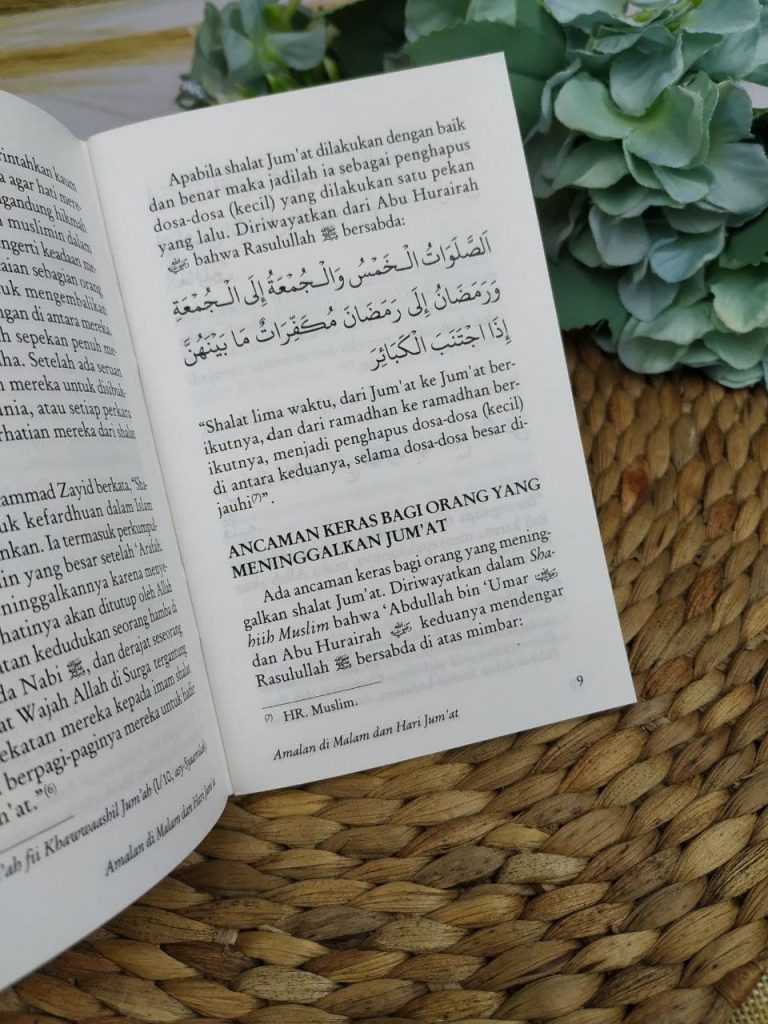 rintahkan kaum
a agar hati mere-
ngandung hikmah
n muslimin dalam
engerti keadaan me-
aian sebagian orang
tuk mengembalikan
ngan di antara mereka
h sepekan penuh me-
ha. Setelah ada seruan
n mereka untuk disibuk-
unia, atau setiap perkara
rhatian mereka dari shalat
ammad Zayid berkata, “Sha-
uk kefardhuan dalam Islam
nkan. Ia termasuk perkumpul-
in yang besar setelah ‘Arafah.
ninggalkannya karena menye-
hatinya akan ditutup oleh Allah
atan kedudukan seorang hamba di
da Nabi ﷺ, dan derajat seseorang
at Wajah Allah di Surga tergantung
ekatan mereka kepada imam shalat
berpagi-paginya mereka untuk hadir
m'at.”(6)
'ah fii Khawwaashil Jum'ah (1/10, asy-Syaamilah)
Amalan di Malam dan Hari Jum'at
Apabila shalat Jum'at dilakukan dengan baik
dan benar maka jadilah ia sebagai penghapus
dosa-dosa (kecil) yang dilakukan satu pekan
yang lalu. Diriwayatkan dari Abu Hurairah
bahwa Rasulullah ﷺ bersabda:
اَلصَّلَوَاتُ الْـخَمْسُ وَالْـجُمْعَةُ إِلَى الْـجُمْعَةِ
وَرَمَضَانُ إِلَى رَمَضَانَ مُكَفِّرَاتٌ مَا بَيْنَهُنَّ
إِذَا اجْتَنَبَ الْكَبَائِرَ
“Shalat lima waktu, dari Jum'at ke Jum'at ber-
ikutnya, dan dari ramadhan ke ramadhan ber-
ikutnya, menjadi penghapus dosa-dosa (kecil)
di antara keduanya, selama dosa-dosa besar di-
jauhi(7)”.
ANCAMAN KERAS BAGI ORANG YANG
MENINGGALKAN JUM'AT
Ada ancaman keras bagi orang yang mening-
galkan shalat Jum'at. Diriwayatkan dalam Sha-
hiih Muslim bahwa ‘Abdullah bin ‘Umar
dan Abu Hurairah keduanya mendengar
Rasulullah ﷺ bersabda di atas mimbar:
(7) HR. Muslim.
Amalan di Malam dan Hari Jum'at
9